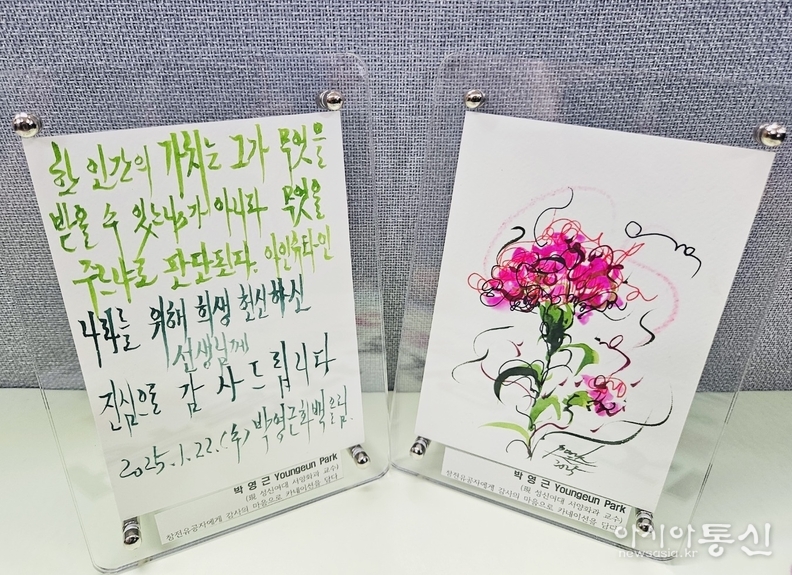 한 인간의 가치는 그가 무엇을
받을 수 있느냐가 아니라 무엇을
주느냐로 판단된다. 아인슈타인
나라를 위해 희생 헌신하신
선생님께
진심으로 감사드립니다
2025.1.22.(수) 박영근화백 올림.
박 영 근 Youngeun Park
(現 성신여대 서양화과 교수)
상전유공자에게 감사의 마음으로 카네이션을 담다
박 영 근 Youngeun Park
(現 성신여대 서양화과 교수)
상전유공자에게 감사의 마음으로 카네이션을 담다
아시아통신
newsasia.kr